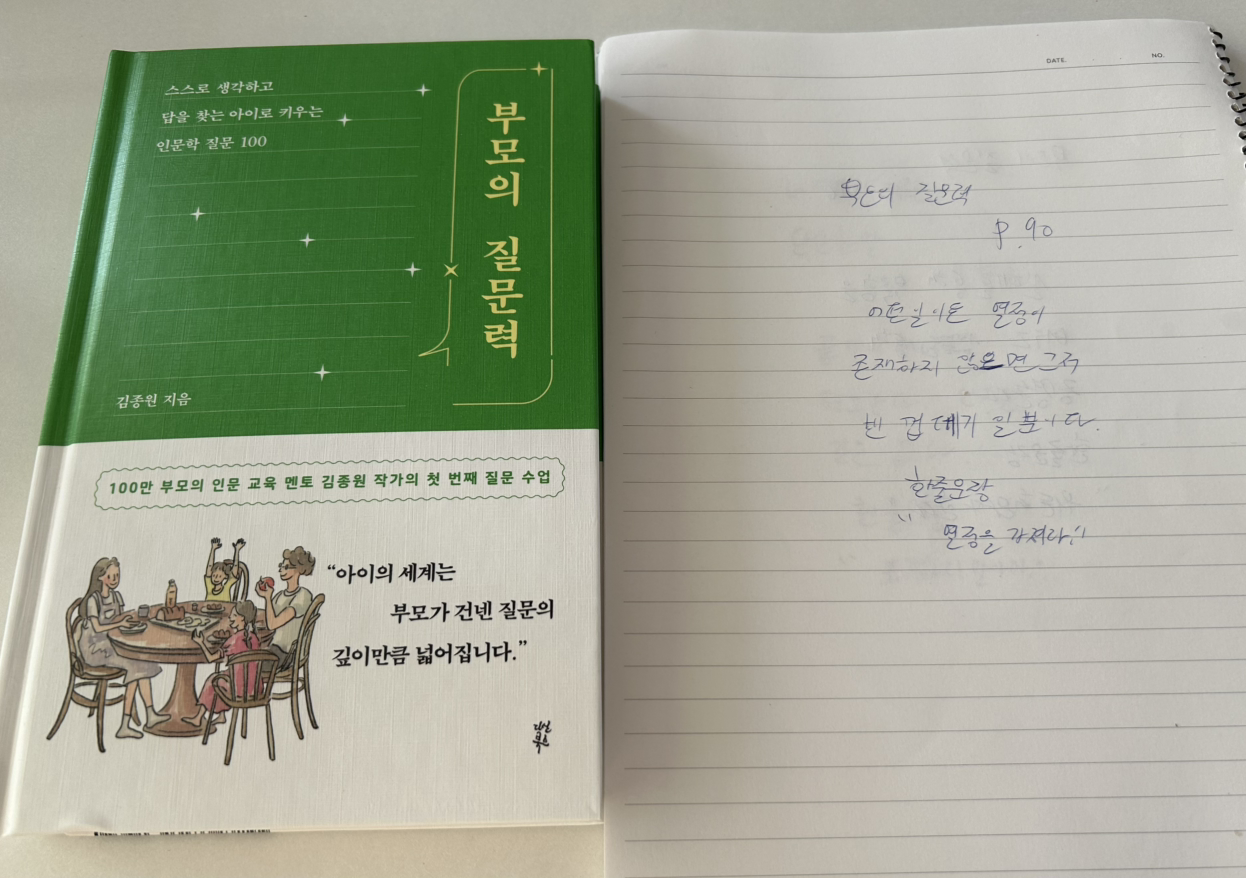 스스로 생각하고
답을 찾는 아이로 키우는
인문학 질문 100
부모의 질문력
김종원 지음
100만 부모의 인문 교육 멘토 김종원 작가의 첫 번째 질문 수업
“아이의 세계는
부모가 건넨 질문의
깊이만큼 넓어집니다.”
다산
북스
DATE. NO.
부모의 질문력
P.90
어떤일이든 열정이
존재하지 않으면 그저
빈 껍데기 일뿐이다.
한줄문장
"열정을 가져라!!